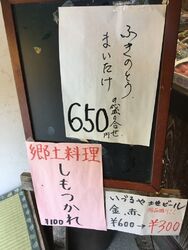 ふきのとう
まいたけ
の盛り合せ
650円
郷土料理
しもつかれ
¥100
いづるや 地ビール
金、赤、
¥600→¥300